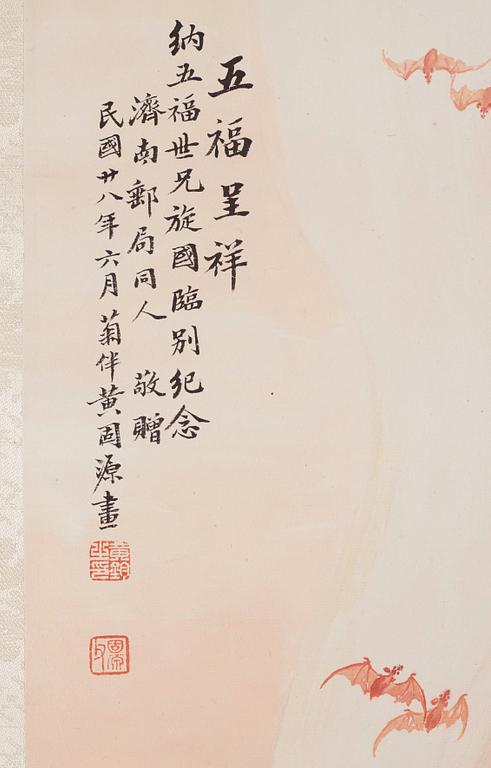 五福呈祥
納五福世兄旋國臨別紀念
濟南郵局同人 敬贈
民國廿八年六月 菊伴黃固源畫
固源